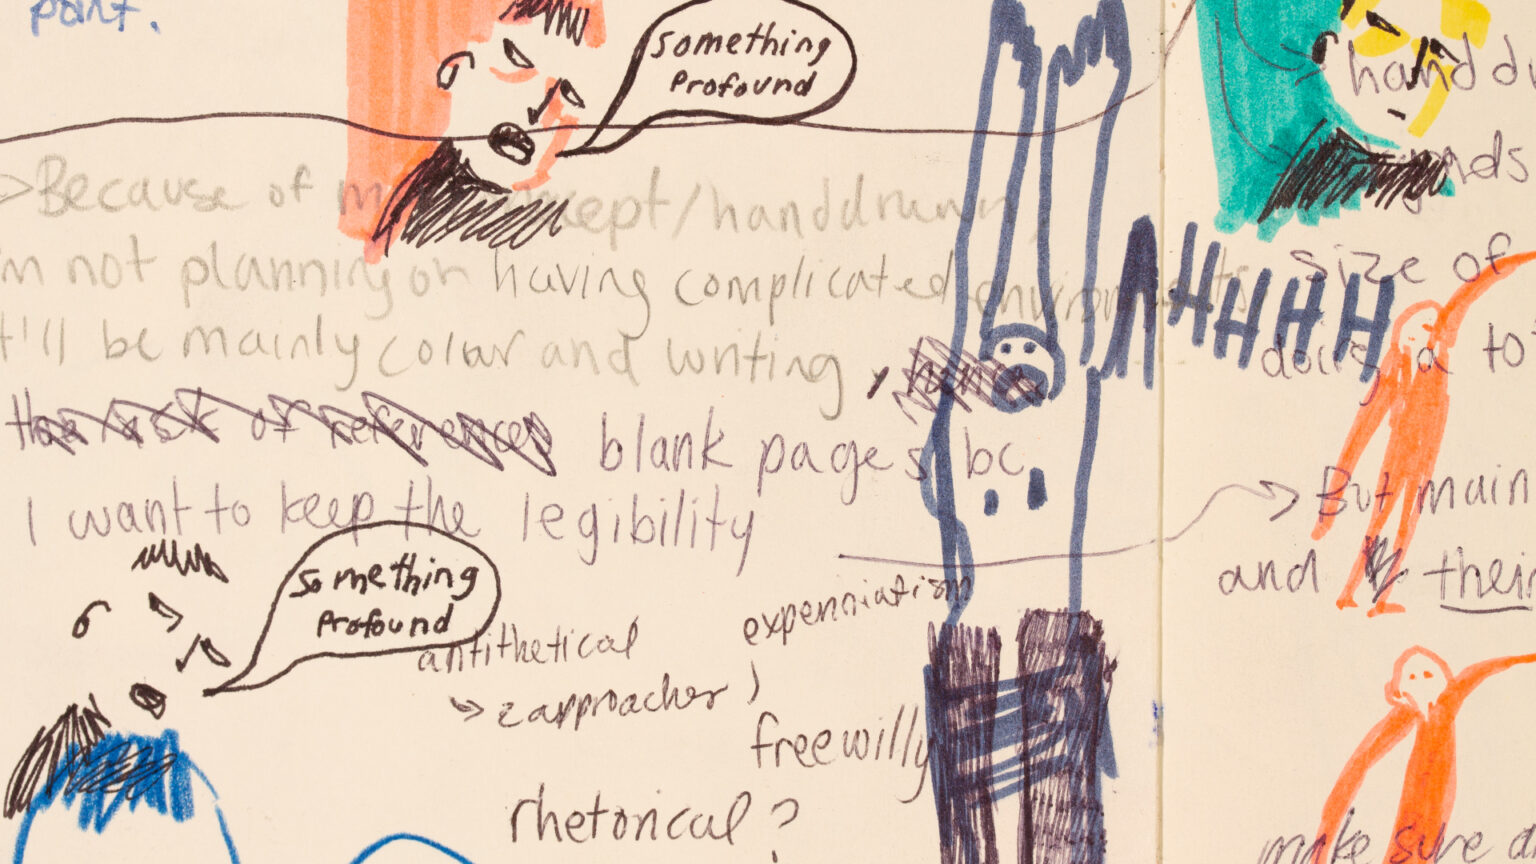 point.
something
profound
Because of my concept/handdrawn,
I'm not planning on having complicated environments
it'll be mainly color and writing,
blank pages bc
I want to keep the legibility
AHHHHH
something
profound
antithetical
2 approaches
free willy
rhetorical?
hand
size of
doing a
But main
and their
make sure